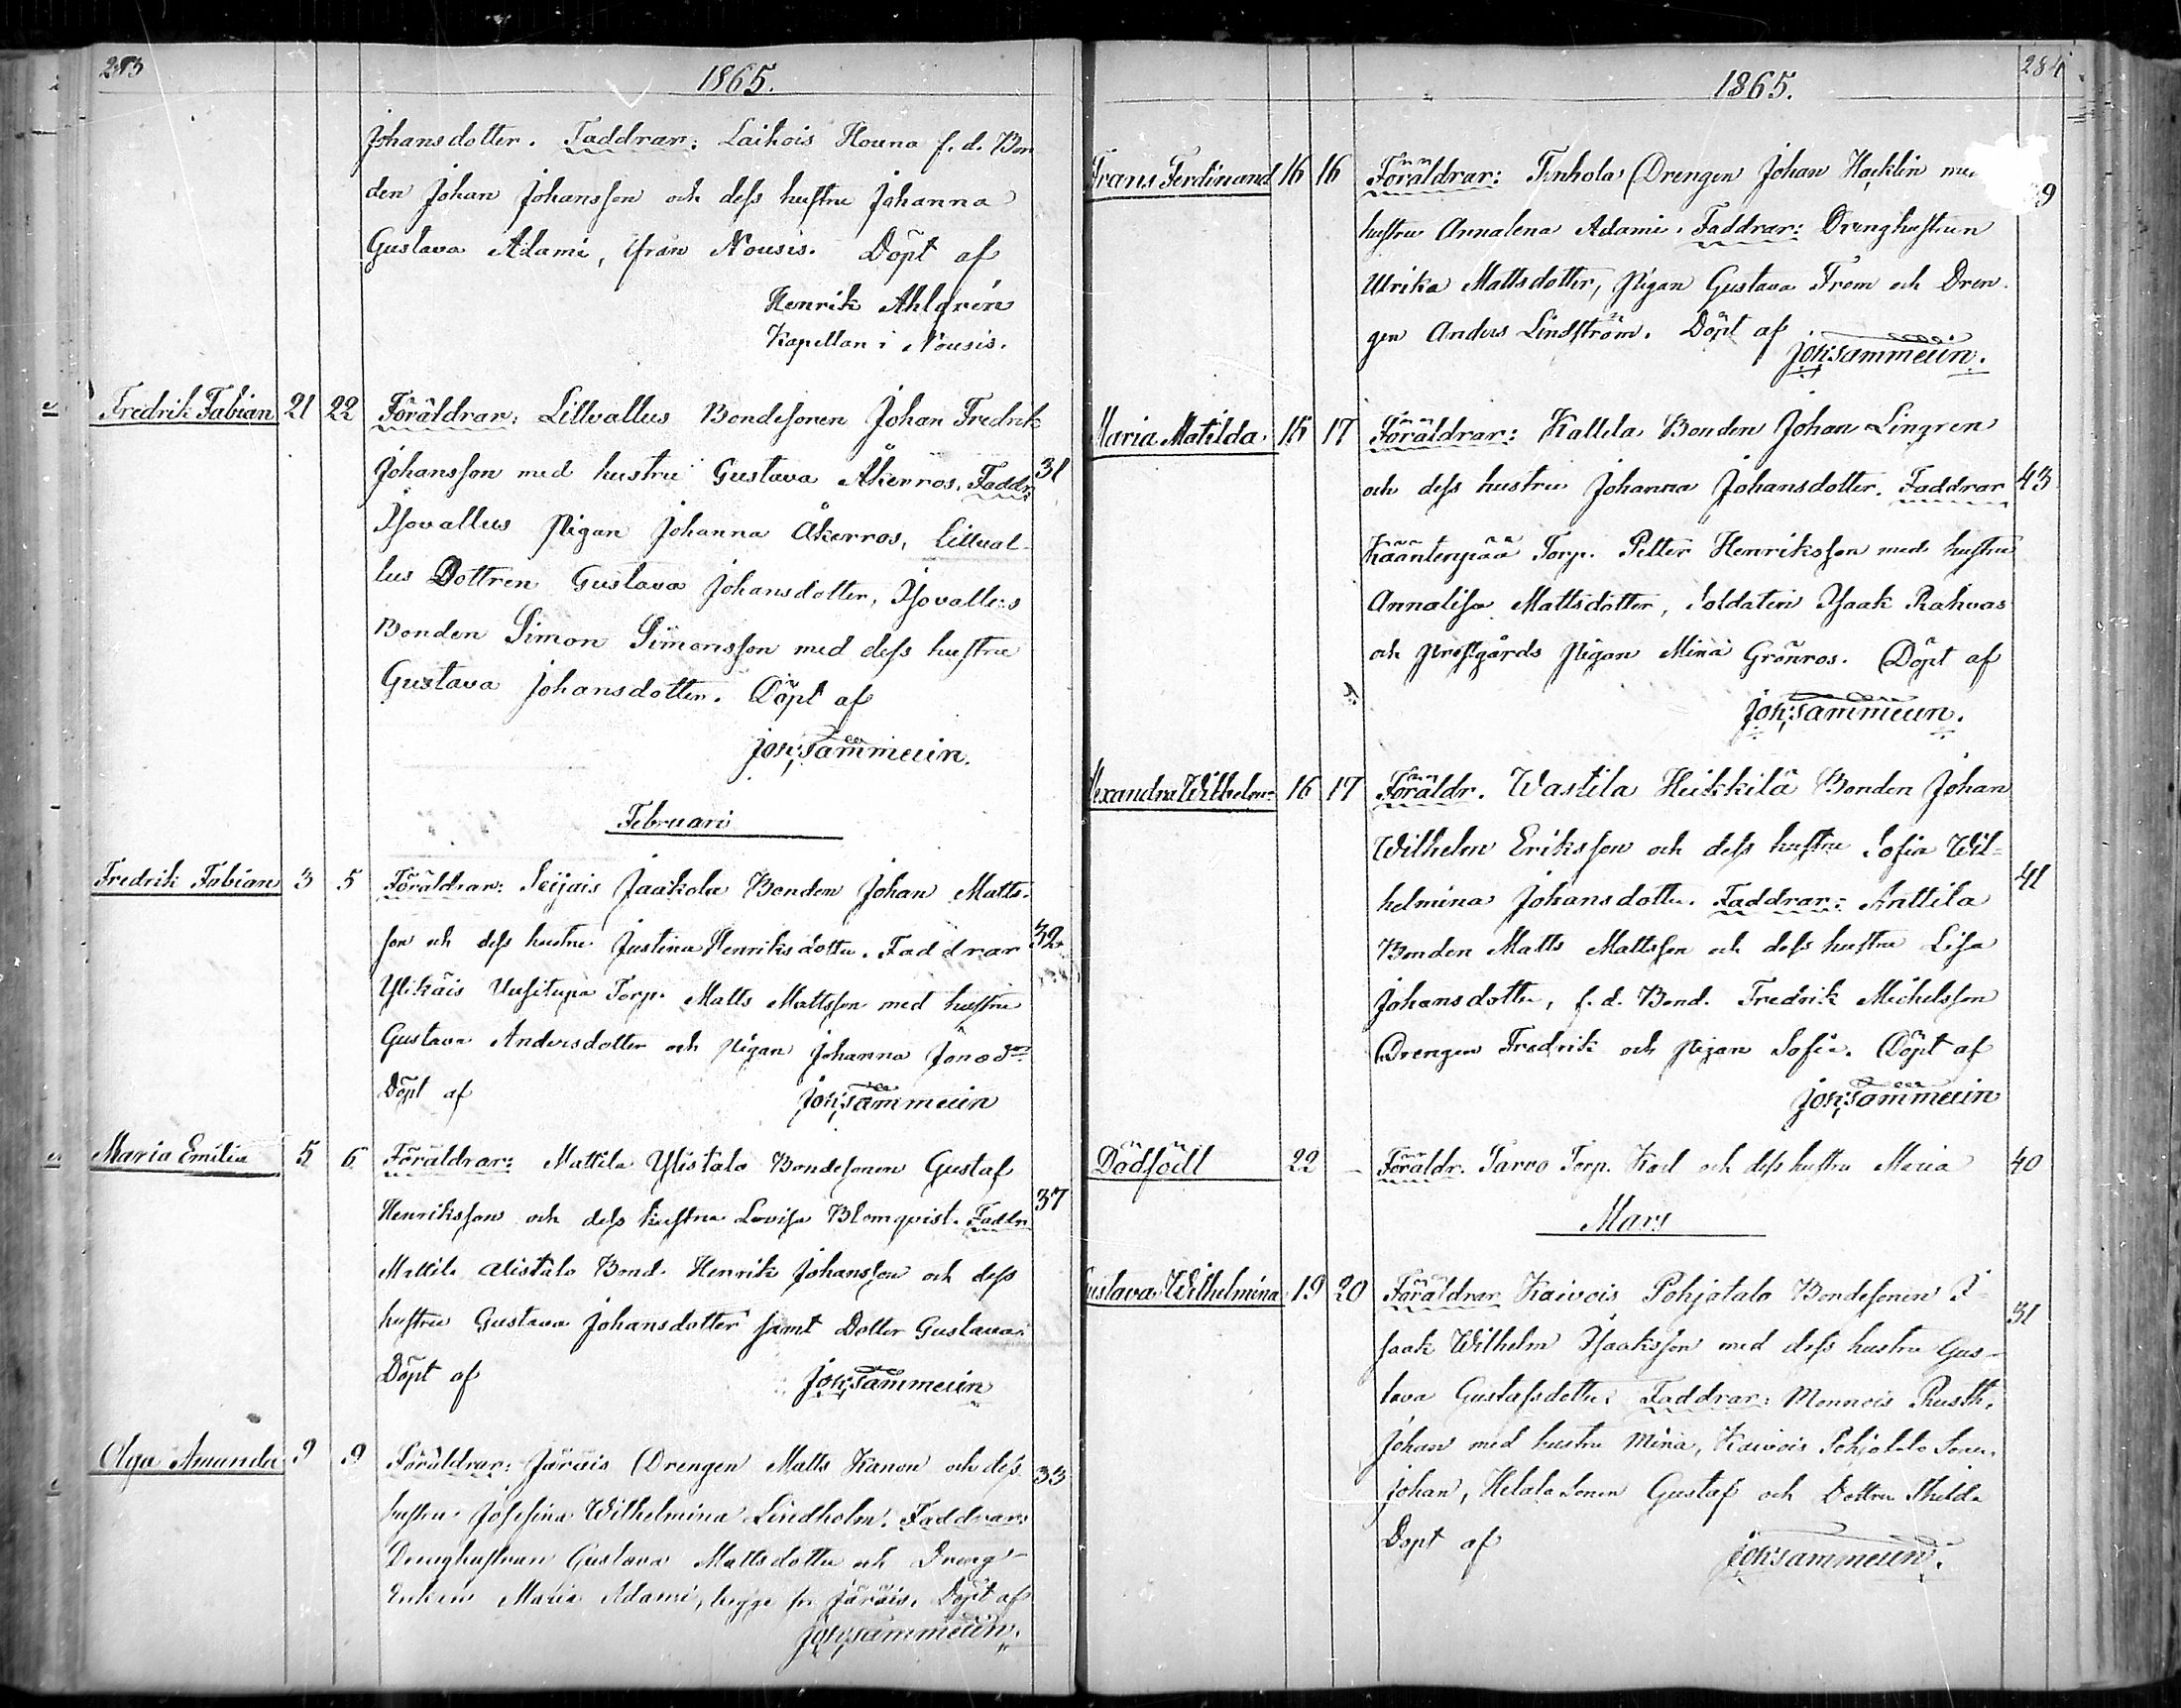 283
1865.
Johansdotter. Faddrar: Laihois Nouna f. d. Bon
den Johan Johansson och dess hustru Johanna
Gustava Adami, ifrån Nousis. Döpt af
Henrik Ahlgrén
Kapellan i Nousis.
Fredrik Fabian 21 22 Föräldrar: Lillvallus Bondesonen Johan Fredrik
Johansson med hustru Gustava Åkerros. Faddr: 31
Isovallus Pigan Johanna Åkerros, Lillval-
lus Dottren Gustava Johansdotter, Isovallus
Bonden Simon Simonsson med dess hustru
Gustava Johansdotter. Döpt af
Joh: Sammeliin.
Februari
Fredrik Fabian 3 5 Föräldrar: Seijais Jaakola Bonden Johan Matts-
son och dess hustru Justina Henriksdotter. Faddrar 32
Ylikäis Uusitupa Torp. Matts Mattsson med hustru
Gustava Andersdotter och Pigan Johanna
Döpt af Joh: Sammeliin
Maria Emilia 5 6 Föräldrar: Mattila Ylistalo Bondesonen Gustaf
Henriksson och dess hustru Lovisa Blomqvist. Faddr 37
Mattila Alistalo Bond. Henrik Johansson och dess
hustru Gustava Johansdotter samt Dotter Gustava
Döpt af Joh: Sammeliin
Olga Amanda 9 9 Föräldrar: Järäis Drengen Matts Kanon och dess 33
hustru Josefina Wilhelmina Lindholm. Faddrar:
Drenghustrun Gustava Mattsdotter och Dreng-
Enkan Maria Adami, begge fr. Järäis. Döpt af
Joh: Sammeliin.
1865. 284
Frans Ferdinand 16 16 Föräldrar: Tenhola Drengen Johan Hacklin med 39
hustru Annalena Adami. Faddrar: Drenghustrun
Ulrika Mattsdotter, Pigan Gustava From och Dren-
gen Anders Lindström. Döpt af
Joh: Sammeliin.
Maria Matilda 15 17 Föräldrar: Kallela Bonden Johan Lingren
och dess hustru Johanna Johansdotter. Faddrar 43
Kääntenpää Torp. Petter Henriksson med hustru
Annalisa Mattsdotter, Soldaten Isaak Rahvas
och Prestgårds Pigan Mina Grönros. Döpt af
Joh: Sammeliin.
Alexandra Wilhelm: 16 17 Föräldr. Wastila Heikkilä Bonden Johan
Wilhelm Eriksson och dess hustru Sofia Wil-
helmina Johansdotter. Faddrar: Anttila 41
Bonden Matts Mattsson och dess hustru Lisa
Johansdotter, f. d. Bond. Fredrik Michelsson
Drengen Fredrik och Pigan Sofia. Döpt af
Joh: Sammeliin
Dödfödt 22 — Föräldr. Tarvo Torp. Karl och dess hustru Maria 40
Mars
Gustava Wilhelmina 19 20 Föräldrar Kaivois Pohjotalo Bondesonen I-
saak Wilhelm Isaksson med dess hustru Gus- 31
tava Gustafsdotter. Faddrar: Monnois Rusth.
Johan med hustru Mina, Kaivois Pohjotalo Sonen
Johan, Helala Sonen Gustaf och Dottren Thilda
Döpt af Joh: Sammeliin.